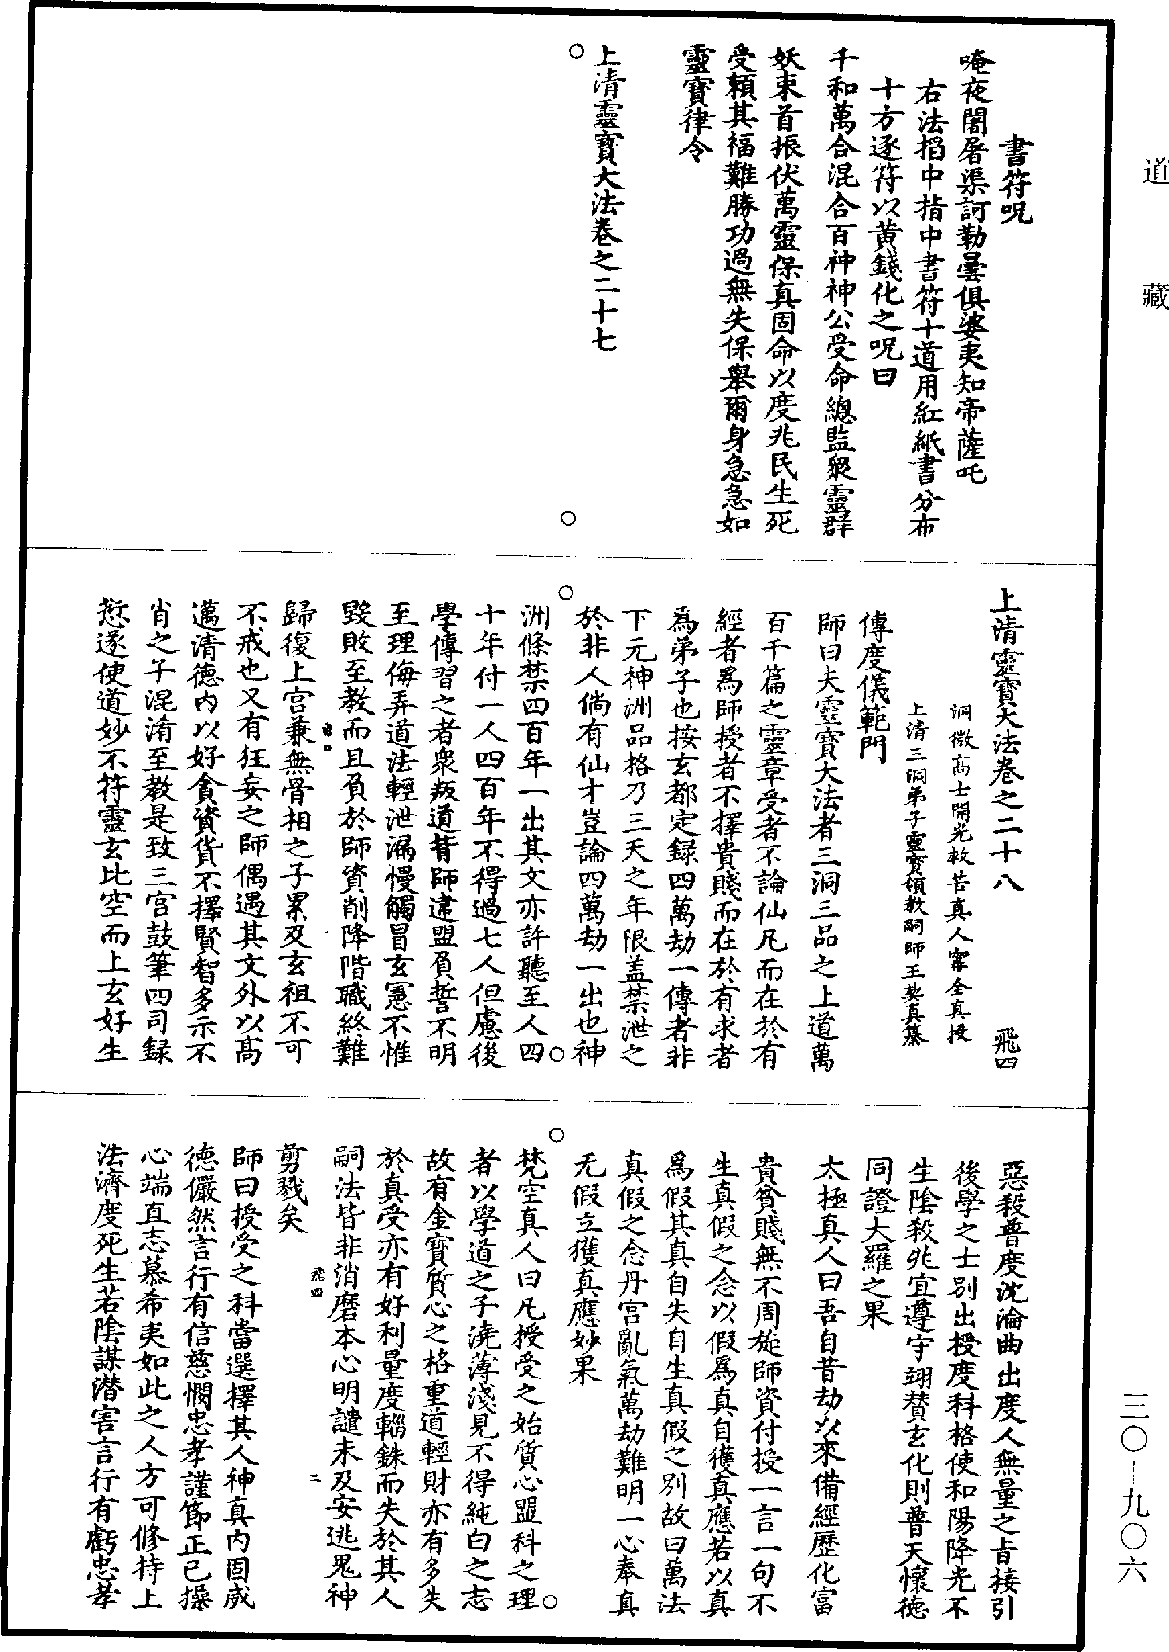 道藏
書符呪
唵夜闍屠渠訶勒曇俱婆夷知帝薩吒
右法搯中指中書符十道用紅紙書分布
十方逐符以黄錢化之呪曰
千和萬合混合百神神公受命總監衆靈群
妖束首振伏萬靈保真固命以度兆民生死
受賴其福難勝功過無失保舉爾身急急如
靈寶律令
上清靈寶大法卷之二十七
上清靈寶大法卷之二十八 飛四
洞微高士開光救苦真人甯全真授
上清三洞弟子靈寶領教嗣師王契真纂
傳度儀範門
師曰夫靈寶大法者三洞三品之上道萬
百千篇之靈章受者不論仙凡而在於有
經者爲師授者不擇貴賤而在於有求者
爲弟子也按玄都定録四萬劫一傳者非
下元神洲品格乃三天之年限盖禁泄之
於非人倘有仙才豈論四萬劫一出也神
洲條禁四百年一出其文亦許聽至人四
十年付一人四百年不得過七人但慮後
學傳習之者衆叛道背師違盟負誓不明
至理侮弄道法輕泄漏慢觸冒玄憲不惟
毀敗至教而且負於師資削降階職終難
歸復上宫兼無骨相之子累及玄祖不可
不戒也又有狂妄之師偶遇其文外以高
邁清德内以好貪資貨不擇賢智多示不
肖之子混淆至教是致三宫鼓筆四司録
愆遂使道妙不符靈玄比空而上玄好生
惡殺普度沈淪曲出度人無量之旨接引
後學之士别出授度科格使和陽降光不
生陰殺兆宜遵守翊賛玄化則普天懷德
同證大羅之果
太極真人曰吾自昔劫以來備經歷化富
貴貧賤無不周旋師資付授一言一句不
生真假之念以假爲真自獲真應若以真
爲假其真自失自生真假之别故曰萬法
真假之念丹宫亂氣萬劫難明一心奉真
无假立獲真應妙果
梵空真人曰凡授受之始質心盟科之理
者以學道之子澆薄淺見不得純白之志
故有金寶質心之格重道輕財亦有多失
於真受亦有好利量度輜銖而失於其人
嗣法皆非消磨本心明譴未及安逃鬼神
飛四 二
剪戮矣
師曰授受之科當選擇其人神真内固威
德儼然言行有信慈憫忠孝謹節正已操
心端直志慕希夷如此之人方可修持上
法濟度死生若陰謀潜害言行有虧忠孝
三〇—九〇六